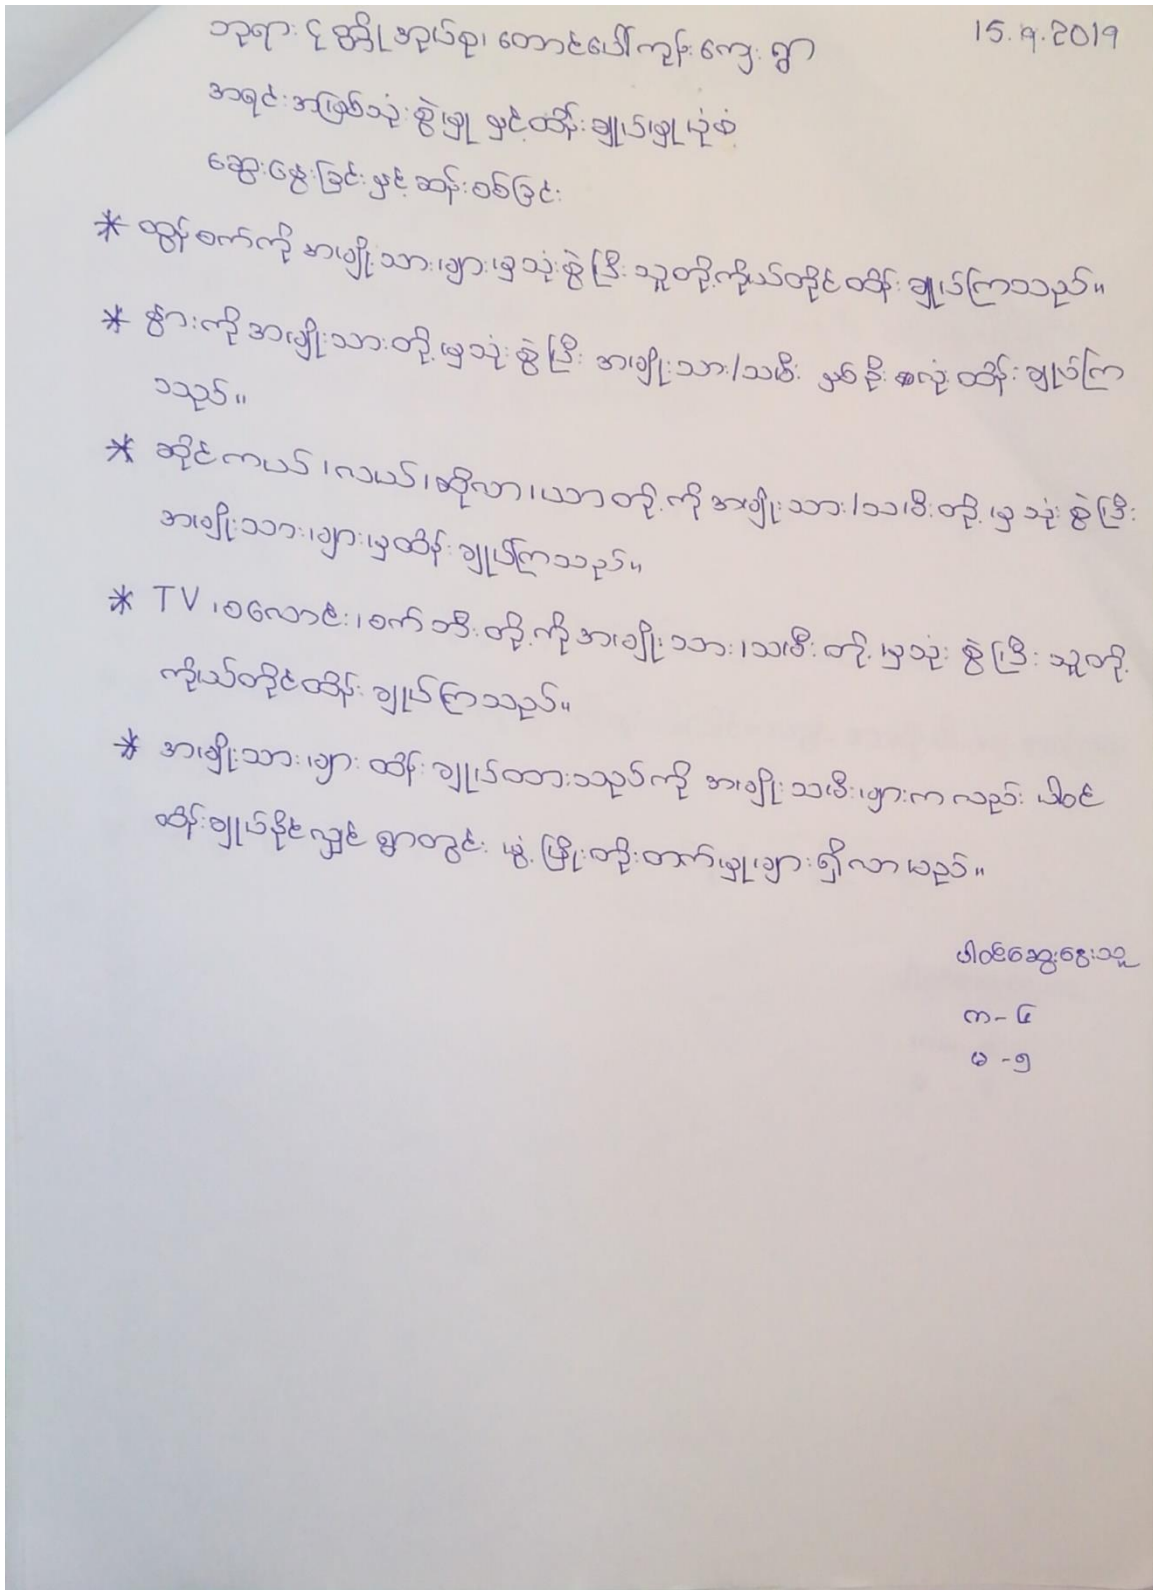 ဘုရားငုစွတ္တိုအုပ်စု၊ တောင်ပေါ်ကုန်းကျေးရွာ 15.9.2019
အရင်းအမြစ်သုံးစွဲမှု နှင့်ထိန်းချုပ်မှုပုံစံ
ဆွေးနွေးခြင်းနှင့် ဆန်းစစ်ခြင်း
* ထွန်စက်ကို အမျိုးသားများမှသုံးစွဲပြီး သူတို့ကိုယ်တိုင်ထိန်းချုပ်ကြသည်။
* နွားကို အမျိုးသားတို့မှသုံးစွဲပြီး အမျိုးသား/သမီး နှစ်ဦးစလုံးထိန်းချုပ်ကြ
သည်။
* ဆိုင်ကယ်၊လယ်၊ဆိုလာ၊ယာတို့ကို အမျိုးသား/သမီးတို့မှသုံးစွဲပြီး
အမျိုးသားများမှထိန်းချုပ်ကြသည်။
* TV ၊စလောင်း၊စက်ဘီးတို့ကို အမျိုးသား၊သမီးတို့မှသုံးစွဲပြီး သူတို့
ကိုယ်တိုင်ထိန်းချုပ်ကြသည်။
* အမျိုးသားများထိန်းချုပ်ထားသည်ကို အမျိုးသမီးများကလည်း ပါဝင်
ထိန်းချုပ်နိုင်လျှင် ရွာတွင်း ဖွံ့ဖြိုးတိုးတက်မှုများရှိလာမည်။
ပါဝင်ဆွေးနွေးသူ
က-၄
မ-၅